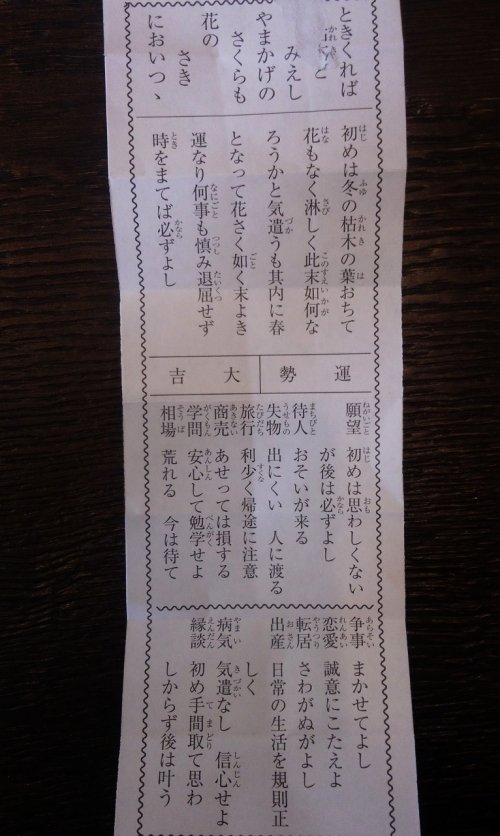 ときくれば
と
みえし
やまかげの
さくらも
花の
さき
においつゝ
初めは冬の枯木の葉おちて
花もなく淋しく此末如何な
ろうかと気遣うも其内に春
となって花さく如く末よき
運なり何事も慎み退屈せず
時をまてば必ずよし
運勢
大吉
願望 初めは思わしくない
が後は必ずよし
待人 おそいが来る
失物 出にくい 人に渡る
旅行 利少く帰途に注意
商売 あせっては損する
学問 安心して勉学せよ
相場 荒れる 今は待て
争事 まかせてよし
恋愛 誠意にこたえよ
転居 さわがぬがよし
出産 日常の生活を規則正
しく
病気 気遣なし 信心せよ
縁談 初め手間取て思わ
しからず後は叶う